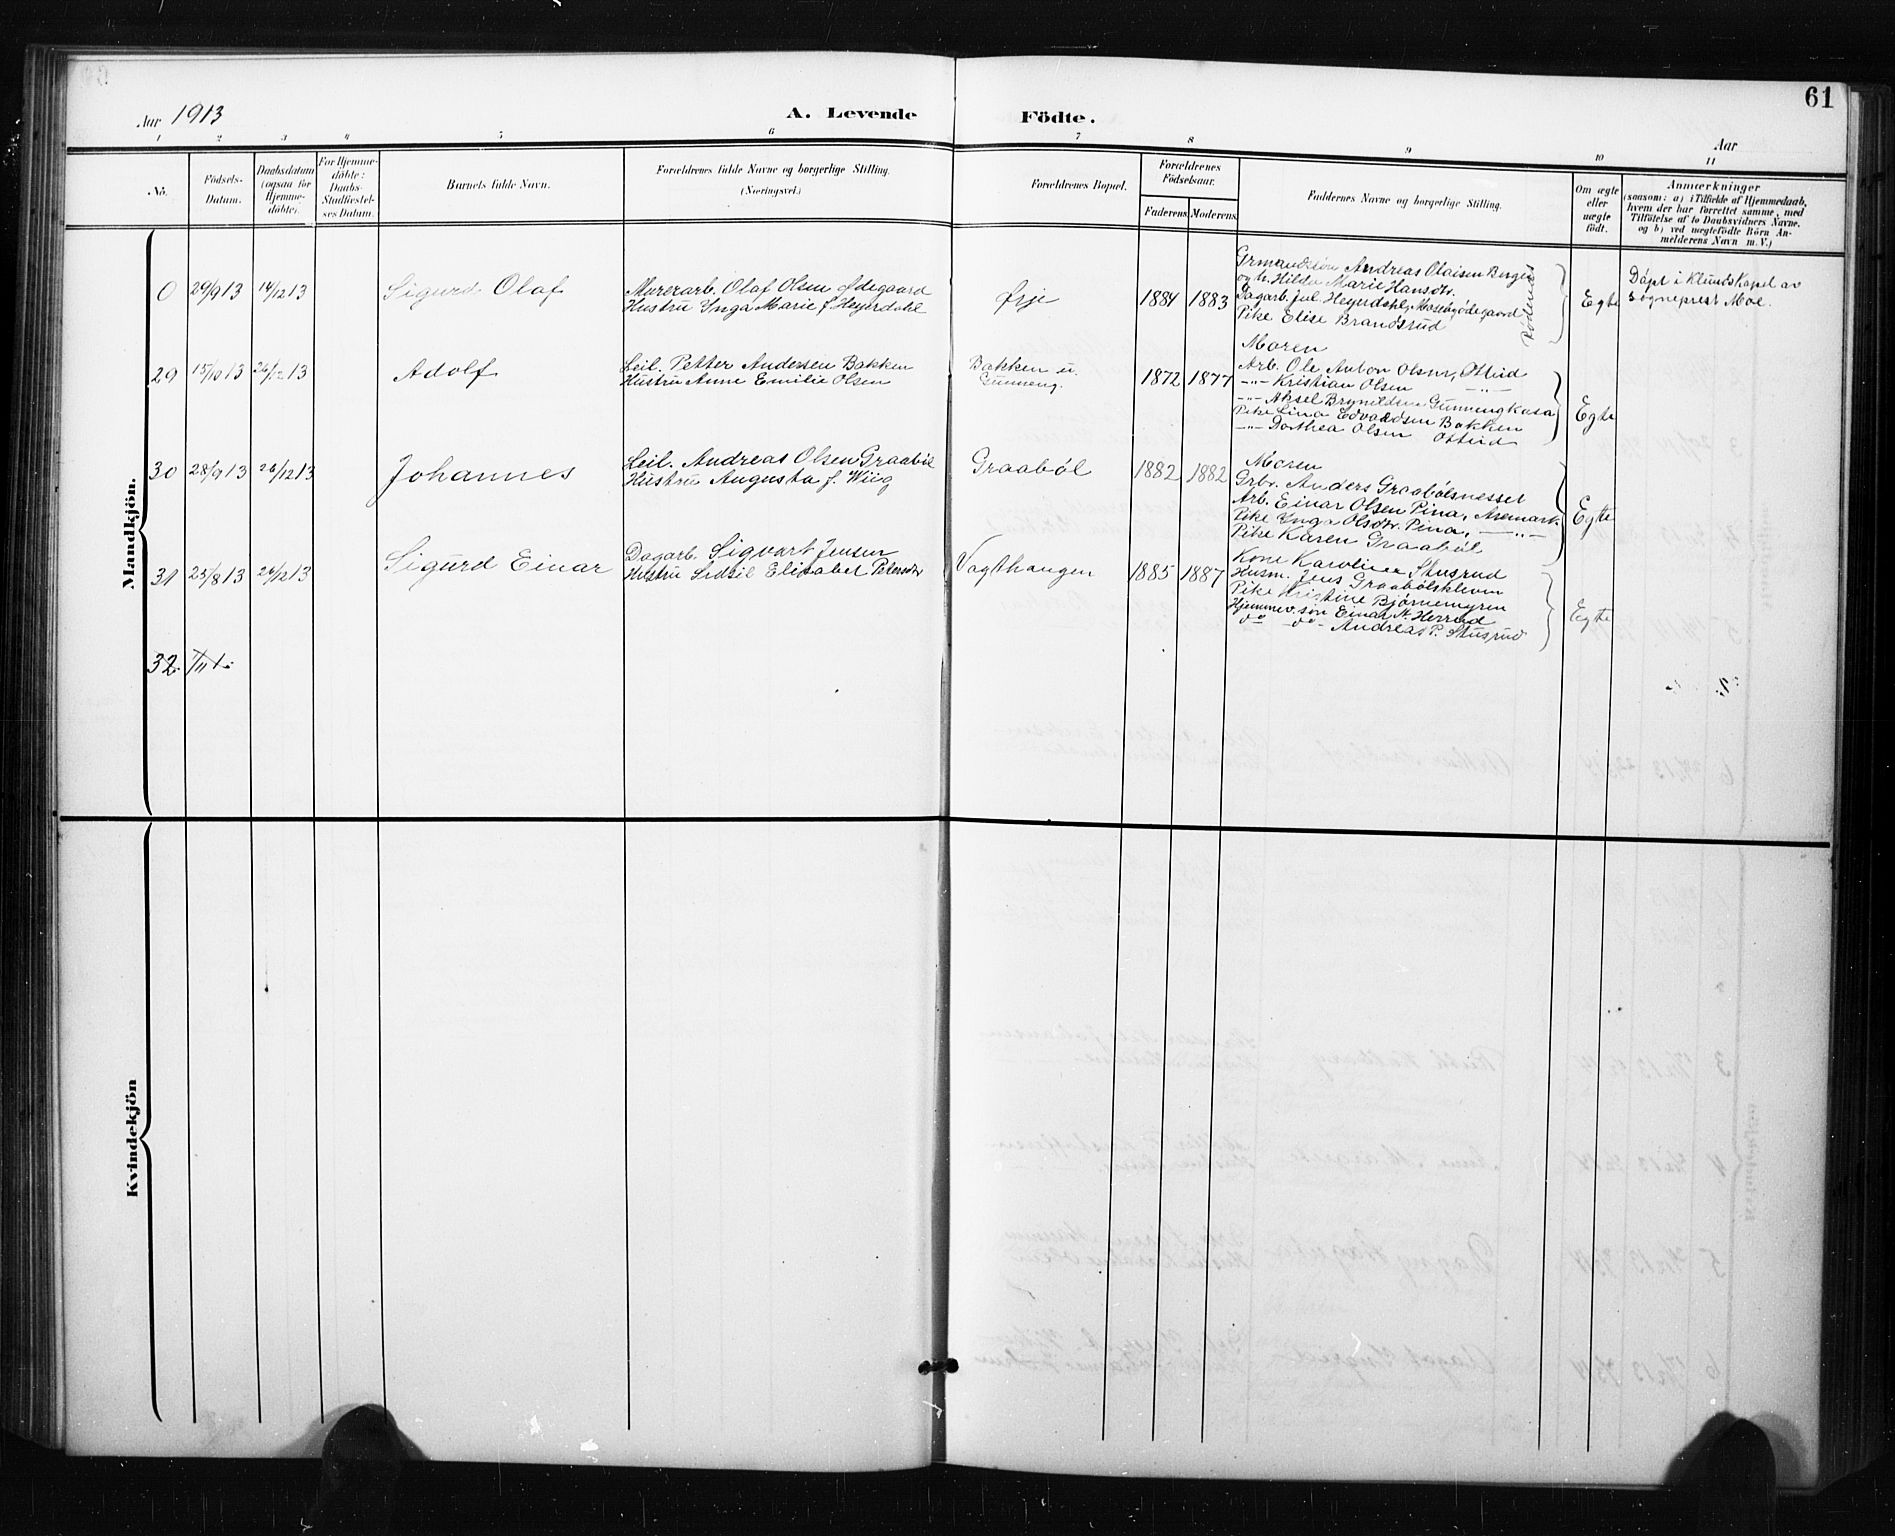 61
Aar 1913
A. Levende
Födte.
Aar
1 2 3 4 5 6 7 8 9 10 11
No.
Födsels-
Datum.
Daabsdatum
(ogsaa for
Hjemme-
döbte)
For Hjemme-
döbte:
Daabs-
Stadfæstel-
ses Datum.
Barnets fulde Navn.
Forældrenes fulde Navne og borgerlige Stilling.
(Næringsvei.)
Forældrenes Bopæl.
Forældrenes
Födselsaar.
Faderens. Moderens.
Faddernes Navne og borgerlige Stilling.
Om ægte
eller
uægte
födt.
Anmærkninger
(saasom: a) i Tilfælde af Hjemmedaab,
hvem der har forrettet samme, med
Tilföielse af to Daabsvidners Navne.
og b) ved uægtefödte Börn An-
melderens Navn m. V.)
Mandkjön.
0 29/9 13 14/12 13 Sigurd Olaf
Murerarb. Olaf Olsen Ødegaard
Hustru Inga Marie f. Heyerdahl
Ørje
1884 1883
Grmandssøn Andreas Olaisen Berger
og h. Hilda Marie Hansdtr.
Dagarb. Jul. Heyerdahl, Mosesødegaard
Pike Elise Brandsrud
Rødenes
Egte
Döpt i Klunds Kapel av
sogneprest Moe.
29 15/10 13 26/12 13 Adolf
Leil. Petter Andersen Bakken
Hustru Anne Emilie Olsen
Bakken u.
Gunneng.
1872 1877
Moren
Arb. Ole Anton Olsen, Otteid
-"- Kristian Olsen -"-
-"- Aksel Brynildsen Gunnengkasa
Pike Lina Edvardsen Bakken
-"- Dorthea Olsen Otteid
Egte
30 28/9 13 26/12 13 Johannes
Leil. Andreas Olsen Graaböl
Hustru Augusta f. Wiig
Graaböl
1882 1882
Moren
Grbr. Anders Graabölsnesset
Arb. Einar Olsen Pina, Aremark
Pike Inga Olsdtr. Pina, -"-
Pike Karen Graaböl
Egte
31 25/8 13 26/12 13 Sigurd Einar
Dagarb. Sigvart Jensen
Hustru Sidsil Elisabet Petersdtr
Vagthaugen
1885 1887
Kone Karoline Stusrud
Husm. Jens Graabölskleven
Pike Kristine Bjørnemyren
Hjemmev. søn Einar N. Herrud
do do - Andreas P. Stusrud
Egte
32.
Kvindekjön